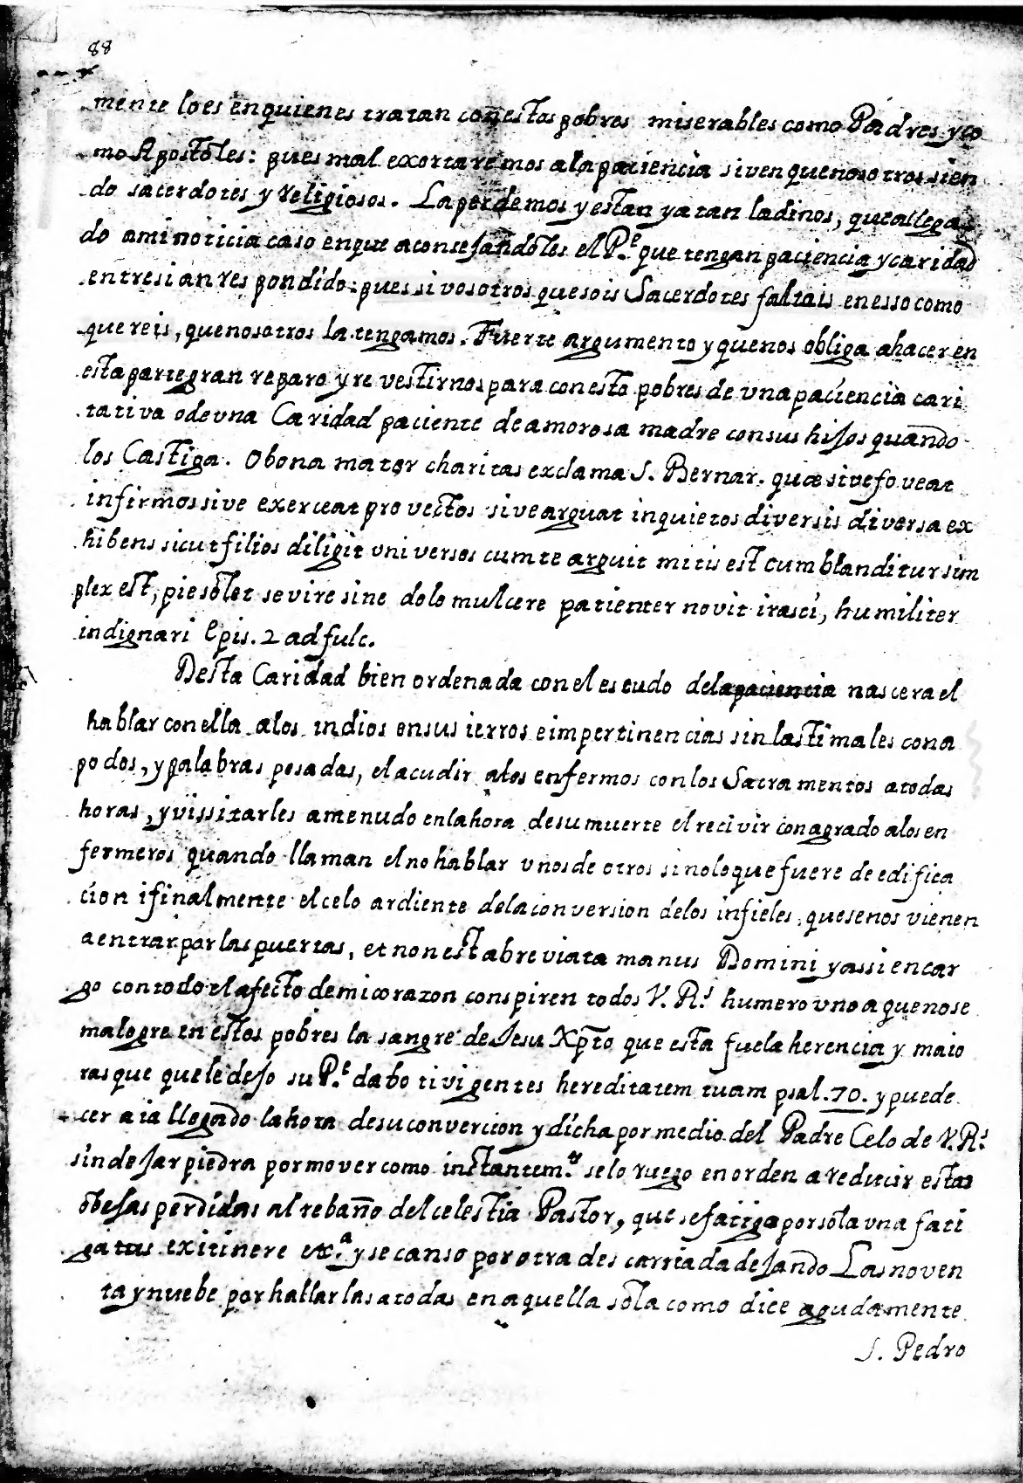 88
mente loes en quienes tratan con estos pobres miserables como Padres y co
mo Apostoles: pues mal exortaremos a la paciencia si ven que nosotros sien
do sacerdotes y religiosos. La perdemos y estan ya tan ladinos, que a llega
do a mi noticia caso en que aconsejandoles el Pe. que tengan paciencia y caridad
entre si an respondido: pues si vosotros que sois Sacerdotes faltais en esso como
quereis, que nosotros la tengamos. Fuerte argumento y que nos obliga a hacer en
esta parte gran reparo y revestirnos para con esto pobres de vna paciencia cari
tativa o de vna Caridad paciente de amorosa madre con sus hijos quando
los Castiga. O bona mater charitas exclama S. Bernar. quæ sive foveat
infirmos sive exerceat provectos sive arguat inquietos diversis diversa ex
hibens sicut filios diligit vniversos cum te arguit mitis est cum blanditur sim
plex est, pie solet sevire sine dolo mulcere patienter novit irasci, humiliter
indignari Epis. 2 ad fulc.
Desta Caridad bien ordenada con el escudo de la paciencia nascera el
hablar con ella a los indios en sus ierros e impertinencias sin lastimales con a
podos, y palabras pesadas, el acudir a los enfermos con los Sacramentos a todas
horas, y vissitarles a menudo en la hora de su muerte el recivir con agrado a los en
fermeros quando llaman el no hablar vnos de otros sino lo que fuere de edifica
cion i finalmente el celo ardiente de la conversion de los infieles, que se nos vienen
a entrar por las puertas, et non est abreviata manus Domini y assi encar
go con todo el afecto de mi corazon conspiren todos V. Rs. humero vno a que no se
malogre en estos pobres la sangre de Jesu Xpto que esta fue la herencia y maio
rasque que le dejo su Pe. dabo tivi gentes hereditatem tuam psal. 70. y puede
cer a ia llegado la hora de su convercion y dicha por medio del Padre Celo de V. Rs.
sin dejar piedra por mover como instantemte. se lo ruego en orden a reducir estas
obejas perdidas al rebaño del celestia Pastor, que se fatiga por sola vna fati
gatus ex itinere etc.a y se canso por otra descarriada dejando Las noven
ta y nuebe por hallarlas a todas en aquella sola como dice agudamente
S. Pedro